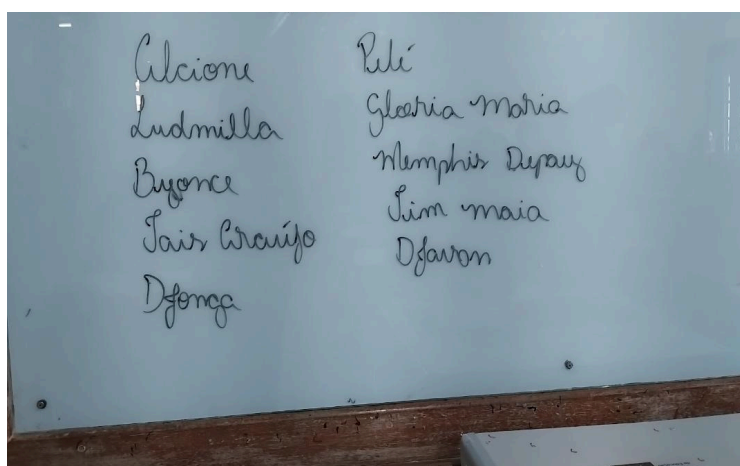 Alcione
Ludmilla
Byonce
Tais Araújo
Djonga
Pelé
Gloria Maria
Memphis Depay
Tim maia
Djavon